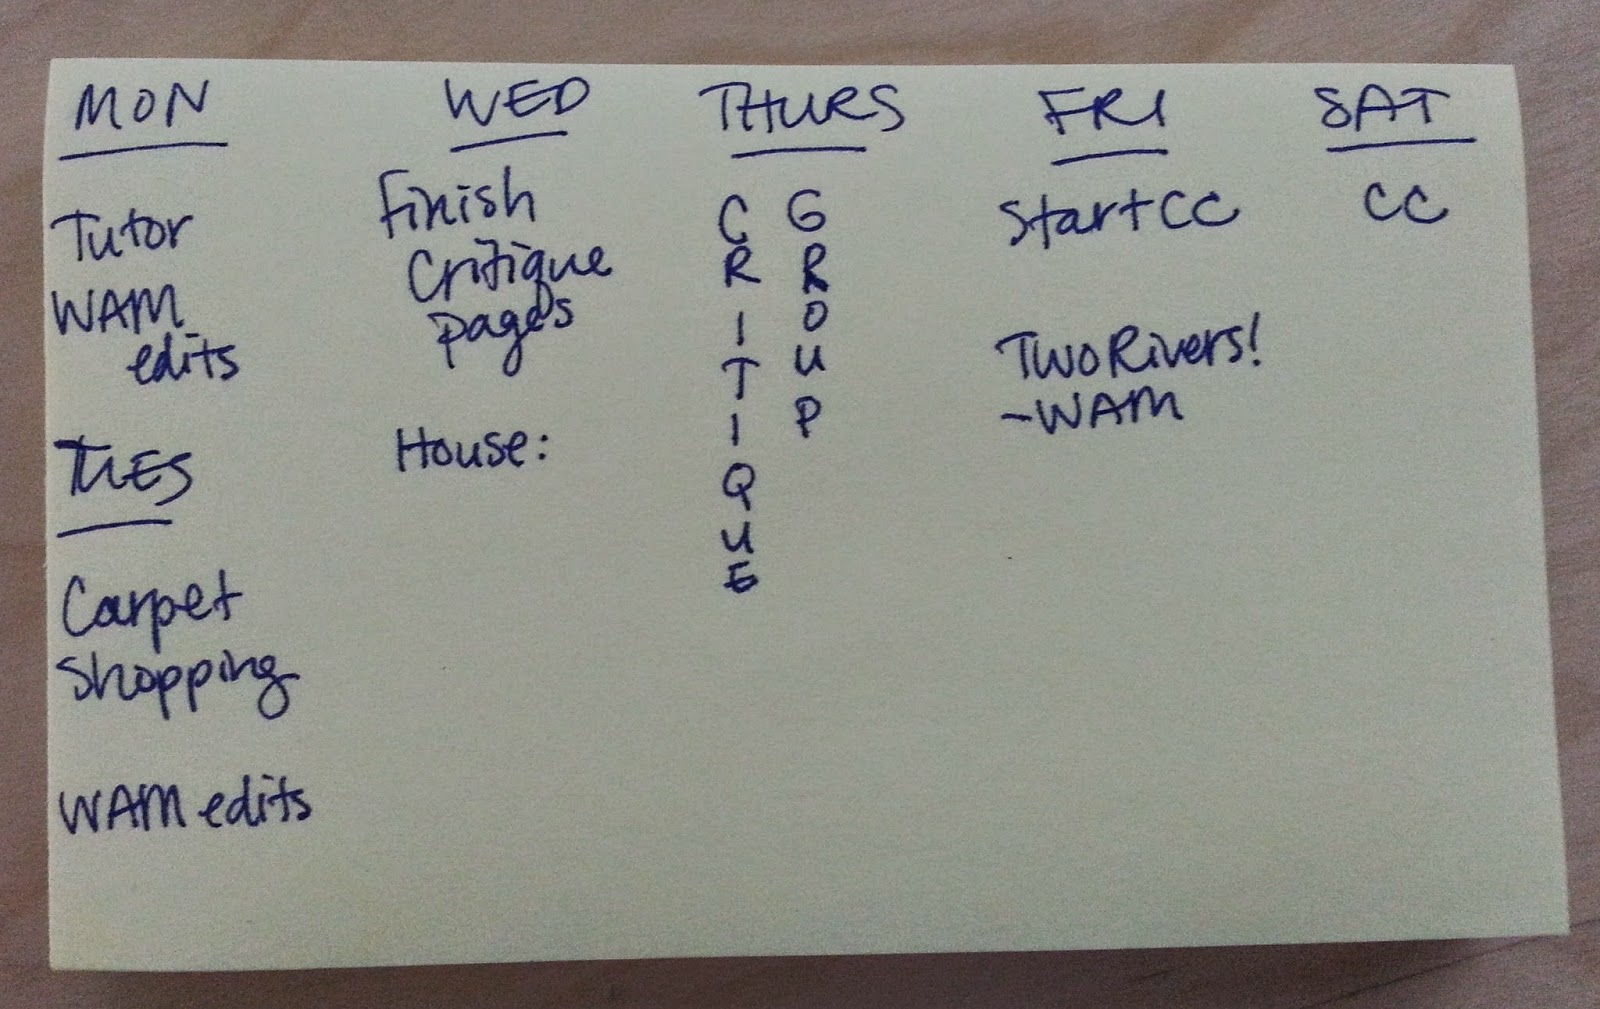 MON
Tutor
WAM
edits
TUES
Carpet
Shopping
WAM edits
WED
Finish
Critique
pages
House:
THURS
CRITIQUE
GROUP
FRI
Start CC
Two Rivers!
-WAM
SAT
CC